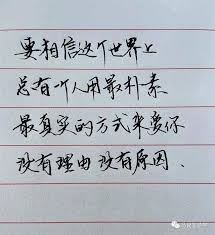 要相信这个世界上
总有个人用最朴素
最真实的方式来爱你
没有理由 没有原因、